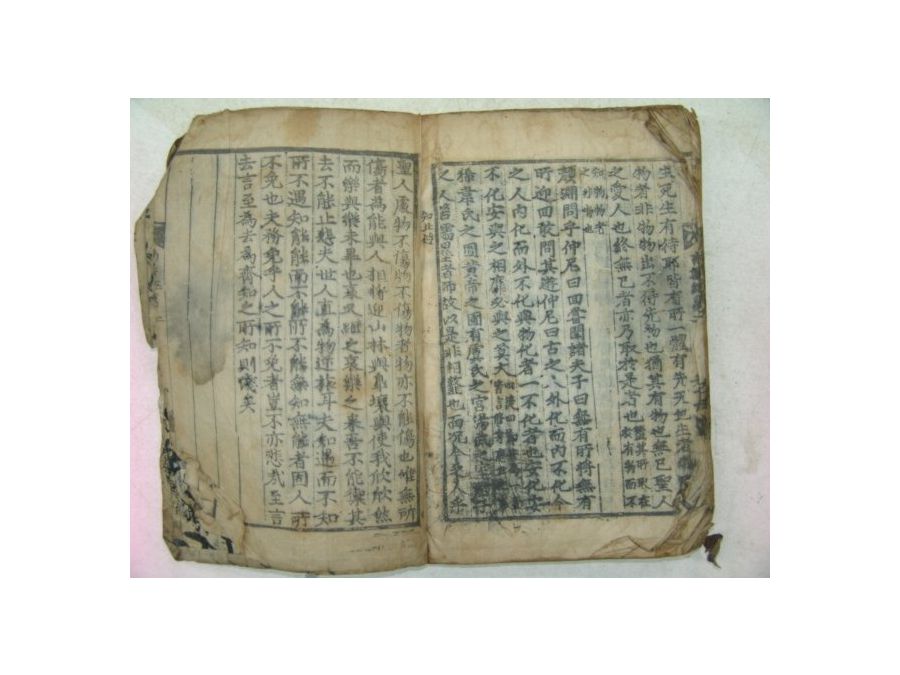 死生有待耶皆有所一體有先天地生者
物者非物物出不得先物也猶其有物也無已聖人
之愛人也終無已者亦乃取於是者也
顏淵問乎仲尼曰回嘗聞諸夫子曰無有所將無有
所迎回敢問其遊仲尼曰古之人外化而內不化今
之人內化而外不化與物化者一不化者也安化安
不化安與之相靡必與之莫
韋氏之囿黃帝之圃有虞氏之宮湯武之室
之人 墨者師故以是非相 也而況今之人乎
知北遊
聖人處物不傷物不傷物者物亦不能傷也惟無所
傷者為能與人相將迎山林與皋壤與使我欣欣然
而樂與樂未畢也哀又繼之哀樂之來吾不能禦其
去不能止悲夫世人直為物逆旅耳夫知遇而不知
所不遇知能能而不能所不能無知無能者固人所
不免也夫務免乎人之所不免者豈不亦悲哉至言
去言至為去為齊知之所知則淺矣